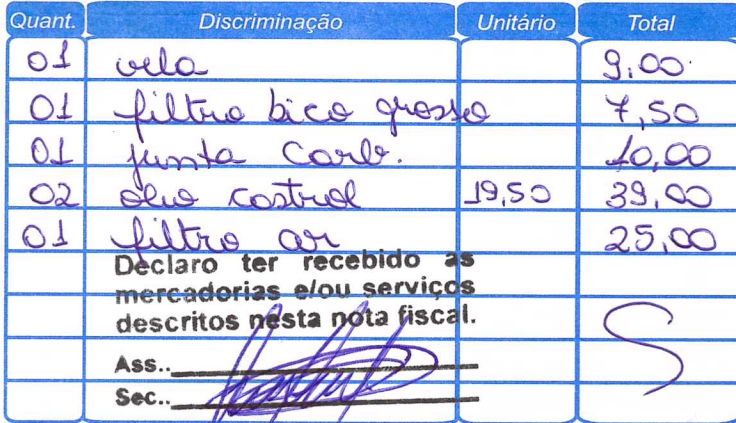 Quant. Discriminação Unitário Total
01 vela 9,00
01 filtro bico grosso 7,50
01 junta Carb. 10,00
02 óleo castrol 19,50 39,00
01 filtro ar 25,00
Declaro ter recebido as
mercadorias e/ou serviços
descritos nesta nota fiscal.
Ass..
Sec..